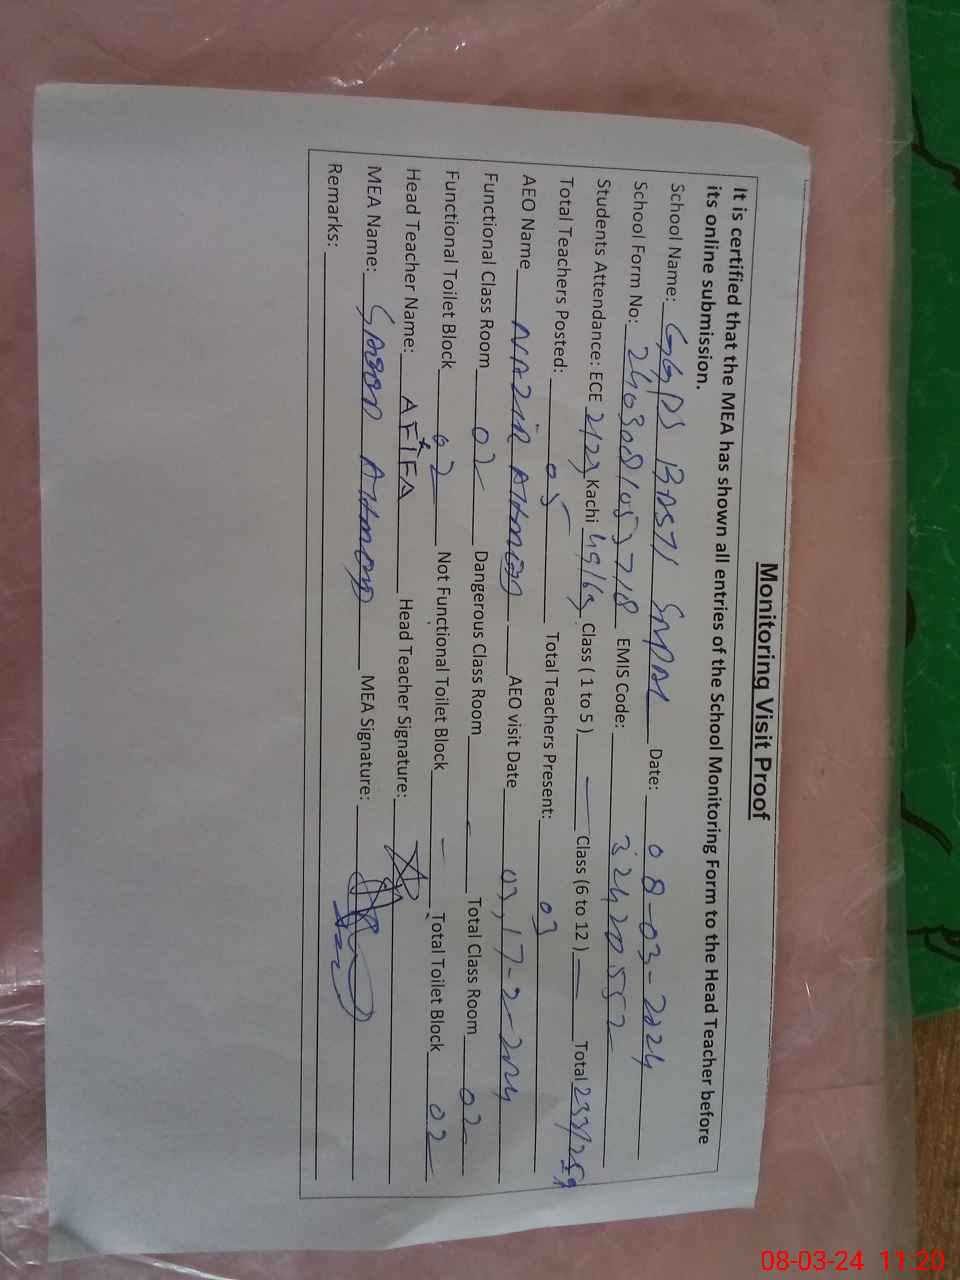 Monitoring Visit Proof
It is certified that the MEA has shown all entries of the School Monitoring Form to the Head Teacher before
its online submission.
School Name: GGPS BASTI Date: 08-03-2024
School Form No: EMIS Code: 32420552
Students Attendance: ECE Kachi 49/63 Class ( 1 to 5 ) — Class (6 to 12 ) — Total 233/259
Total Teachers Posted: 05 Total Teachers Present: 03
AEO Name NAZIR AHMAD AEO visit Date 03, 17-2-2024
Functional Class Room 02 Dangerous Class Room - Total Class Room 02
Functional Toilet Block 02 Not Functional Toilet Block - Total Toilet Block 02
Head Teacher Name: AFIFA Head Teacher Signature:
MEA Name: AHMAD MEA Signature:
Remarks:
08-03-24 11:20